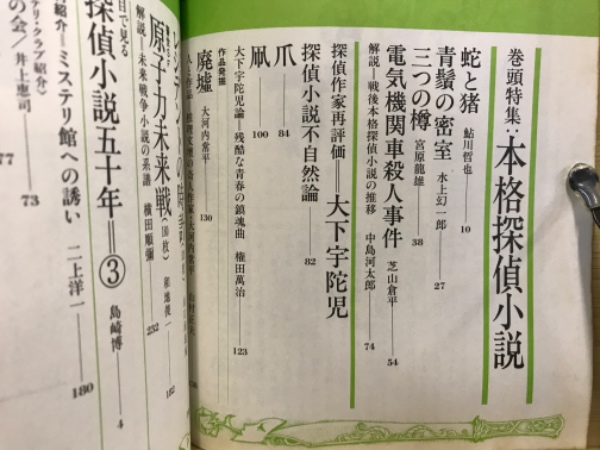 巻頭特集：本格探偵小説
蛇と猪 鮎川哲也 10
青鬚の密室 水上幻一郎 27
三つの樽 宮原龍雄 38
電気機関車殺人事件 芝山倉平 54
解説＝戦後本格探偵小説の推移 中島河太郎 74
探偵作家再評価＝大下宇陀児
探偵小説不自然論 82
爪 84
凧 100
大下宇陀児論＝残酷な青春の鎮魂曲 権田萬治 123
作品発掘
廃墟 大河内常平 130
人と作品
原子力未来戦 232
解説＝未来戦争小説の系譜 横田順彌
182
目で見る
探偵小説五十年＝③ 島崎博 4
紹介＝ミステリ館への誘い 二上洋一 180
クラブ紹介
の会／井上恵司 73
77